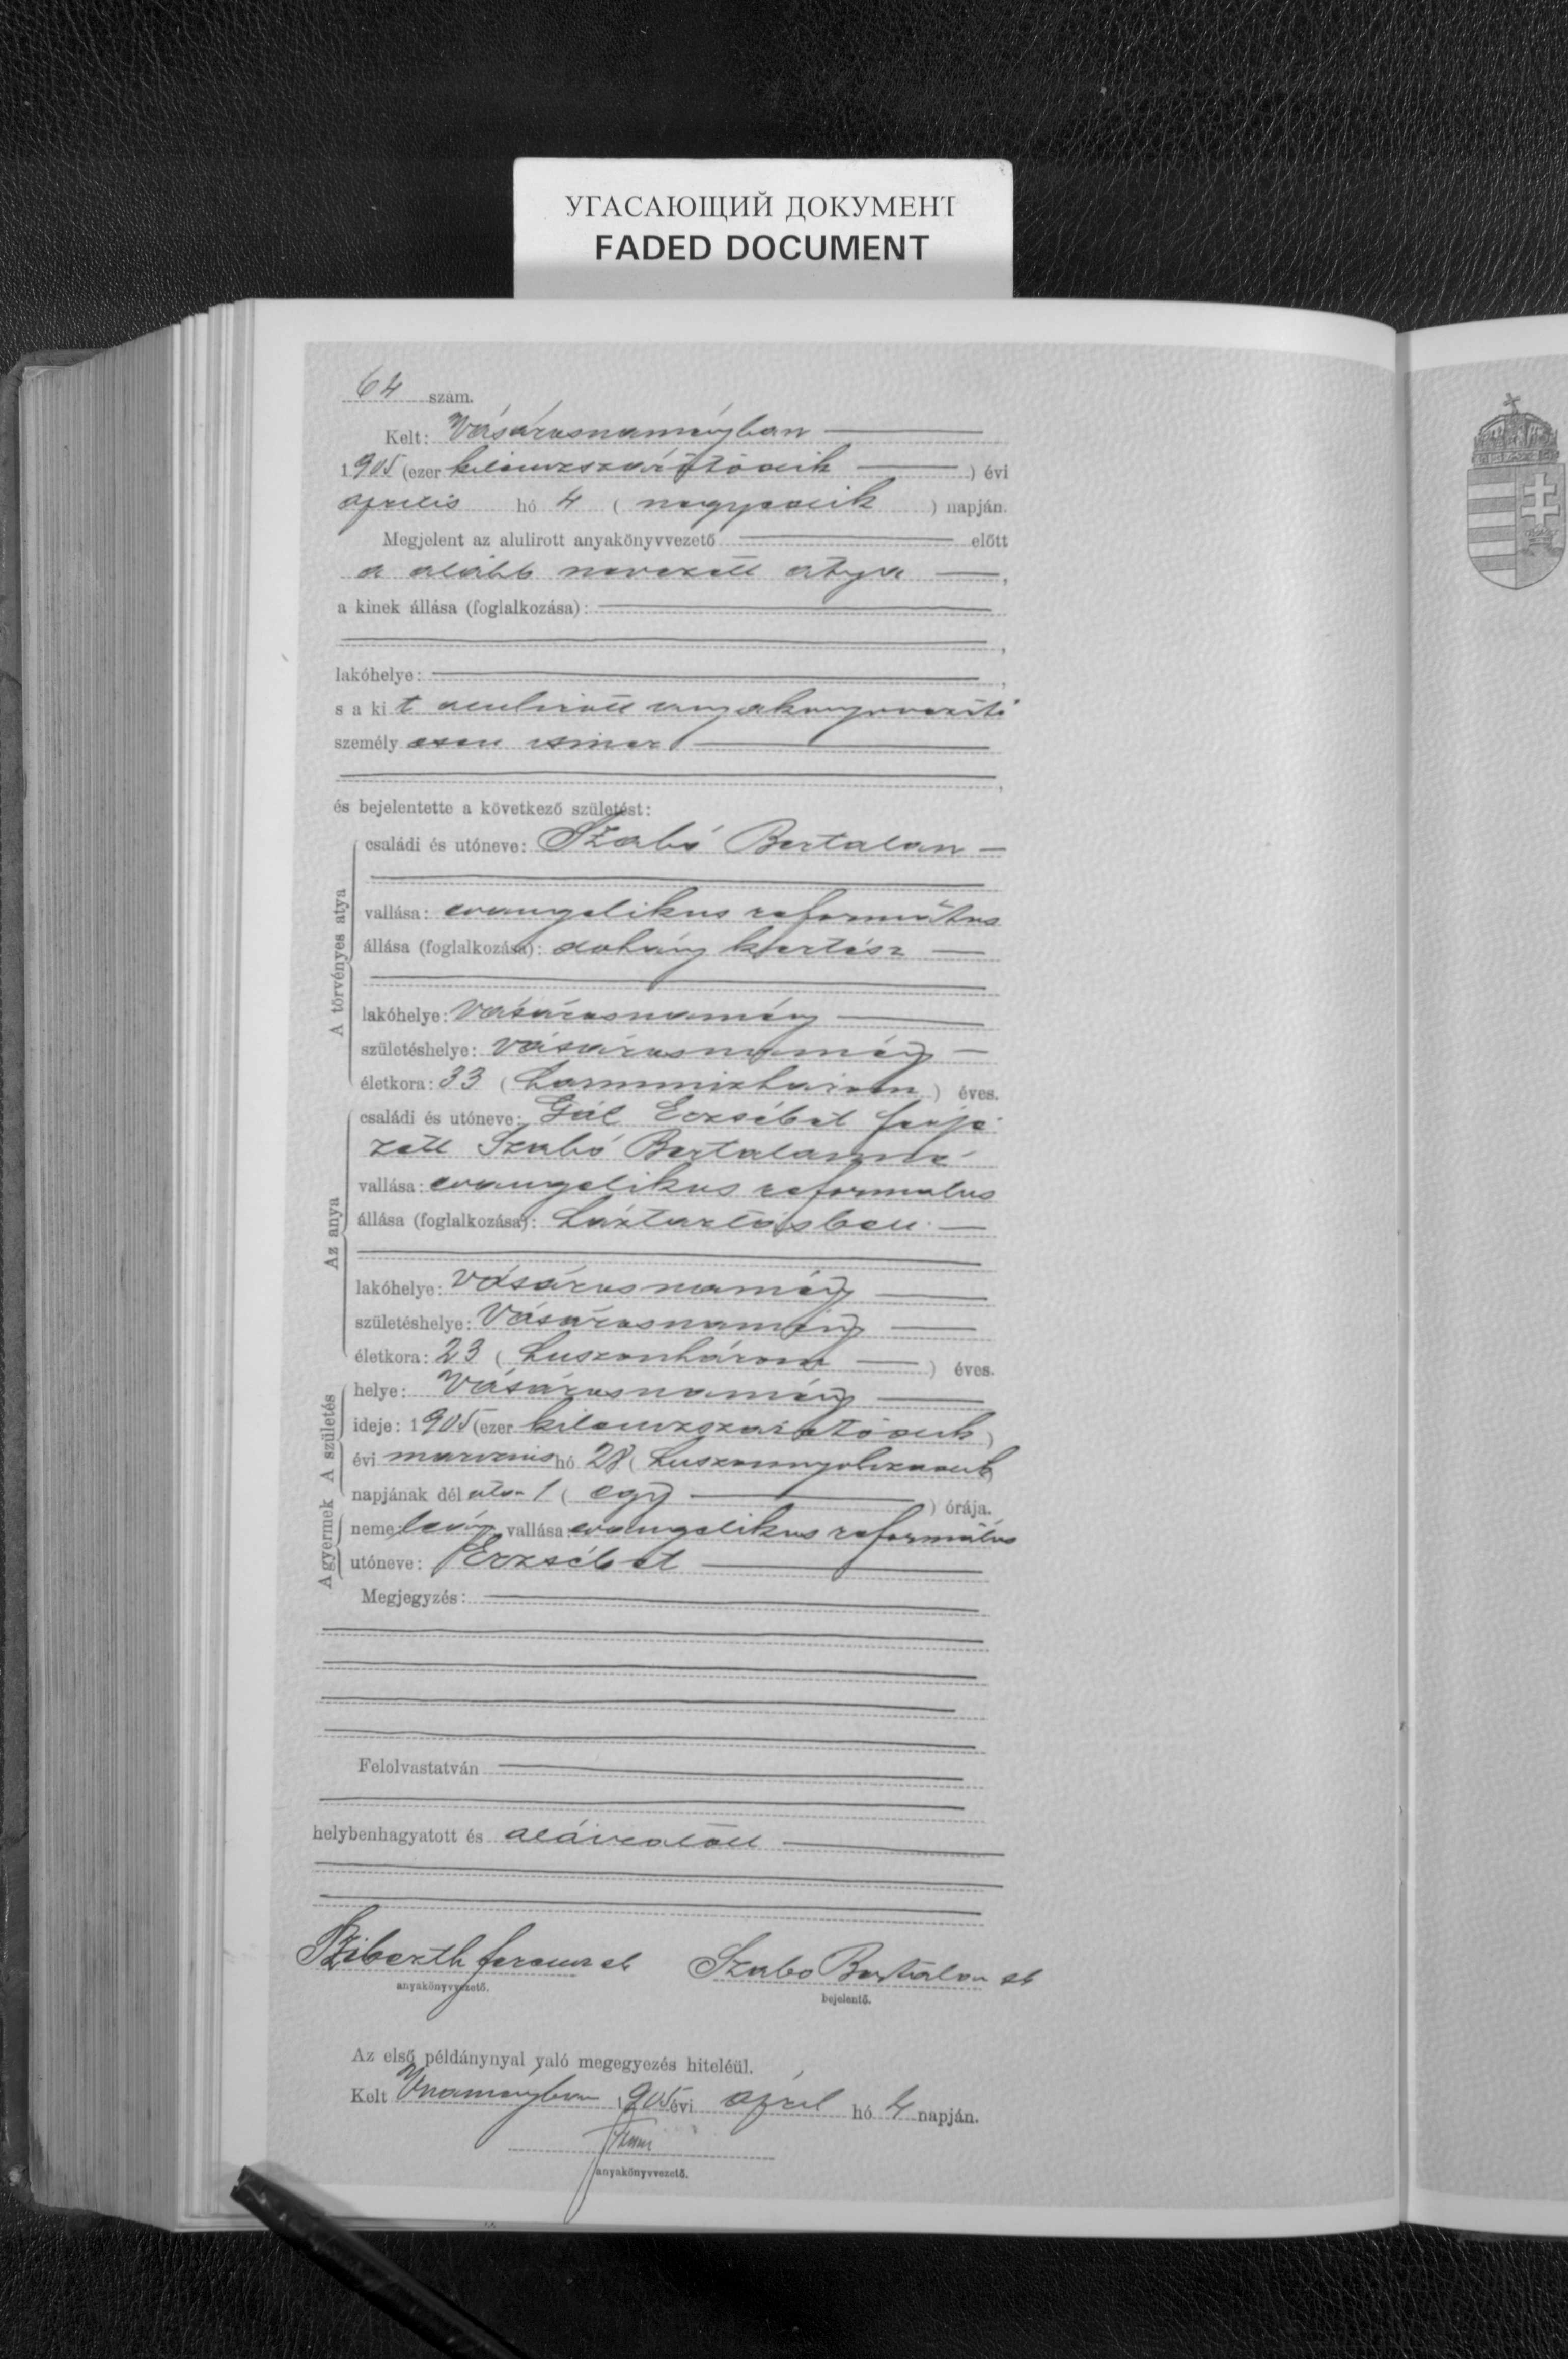 УГАСАЮЩИЙ ДОКУМЕНТ
FADED DOCUMENT
64 szám.
Kelt: Vásárosnaményban
1905 (ezer kilenczszázötödik) évi
április hó 4 (negyedik) napján.
Megjelent az alulirott anyakönyvvezető előtt
a alább nevezett atya,
a kinek állása (foglalkozása):
lakóhelye:
s a kit alulirott anyakönyvvezető
személyesen ismer
és bejelentette a következő születést:
A törvényes atya
családi és utóneve: Szabó Bertalan
vallása: evangelikus református
állása (foglalkozása): dohány kertész
lakóhelye: Vásárosnamény
születéshelye: Vásárosnamény
életkora: 33 (harminczhárom) éves.
Az anya
családi és utóneve: Gál Erzsébet férje
zett Szabó Bertalanné
vallása: evangelikus reformatus
állása (foglalkozása): háztartásbeli
lakóhelye: Vásárosnamény
születéshelye: Vásárosnamény
életkora: 23 (huszonhárom) éves.
A születés
helye: Vásárosnamény
ideje: 1905 (ezer kilenczszázötödik)
évi marczius hó 28 (huszonnyolczadik)
napjának dél után 1 (egy) órája.
A gyermek
neme: leány vallása: evangelikus református
utóneve: Erzsébet
Megjegyzés:
Felolvastatván
helybenhagyatott és aláiratott
Ferencz sk Szabo Bertalan sk
anyakönyvvezető. bejelentő.
Az első példánynyal való megegyezés hiteléül.
Kelt Vnaményban 1905 évi april hó 4 napján.
anyakönyvvezető.